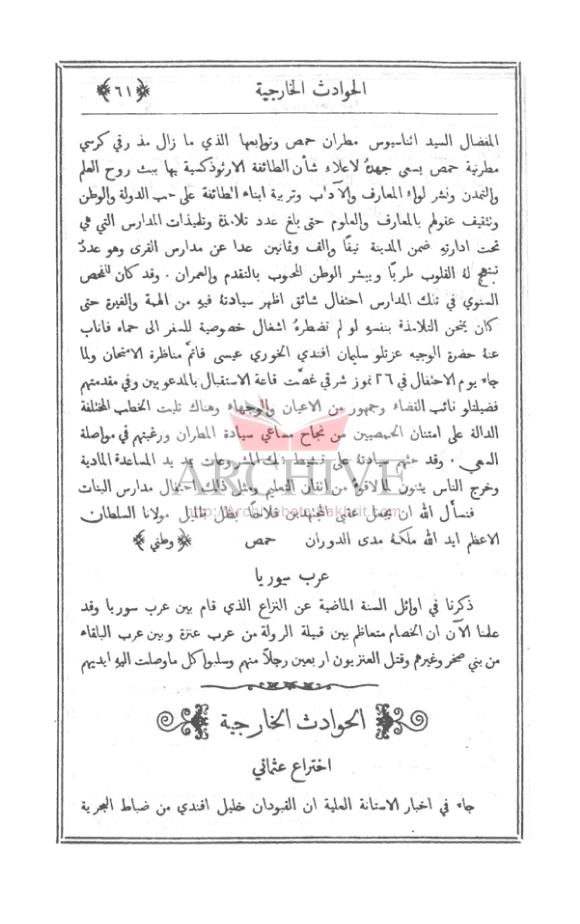 الحوادث الخارجية ﴿٦١﴾
المفضال السيد اثناسيوس مطران حمص وتوابعها الذي ما زال مذ رقي كرسي
مطرنية حمص يسعى جهدهُ لاعلاء شأن الطائفة الارثوذكسية بها ببث روح العلم
والتمدن ونشر لواء المعارف والآداب وتربية ابناء الطائفة على حب الدولة والوطن
وتثقيف عقولهم بالمعارف والعلوم حتى بلغ عدد تلامذة وتلميذات المدارس التي هي
تحت ادارتهِ ضمن المدينة نيفًا والف وثمانين عدا عن مدارس القرى وهو عددٌ
تبتهج لهُ القلوب طربًا ويبشر الوطن المحبوب بالتقدم والعمران . وقد كان للفحص
السنوي في تلك المدارس احتفال شائق اظهر سيادتهُ فيهِ من الهمة والغيرة حتى
كان يمتحن التلامذة بنفسهِ لو لم تضطرهُ اشغال خصوصية للسفر الى حماه فاناب
عنهُ حضرة الوجيه عزتلو سليمان افندي الخوري عيسى فاتمَّ مناظرة الامتحان ولما
جاء يوم الاحتفال في ٢٦ تموز شرقي غصَّت قاعة الاستقبال بالمدعوين وفي مقدمتهم
فضيلتلو نائب القضاء وجمهور من الاعيان والوجهاء وهناك تليت الخطب المختلفة
الدالة على امتنان الحمصيين من نجاح مساعي سيادة المطران ورغبتهم في مواصلة
السعي . وقد حثهم سيادتهُ على تنشيط تلك المشروعات بمد يد المساعدة المادية
وخرج الناس يثنون لما لاقوهُ من اتقان التعليم ومثل ذلك احتفال مدارس البنات
فنسأل الله ان يجعل عقبى المجتهدين فلاحًا بظل جليل مولانا السلطان
الاعظم ايد الله ملكهُ مدى الدوران حمص ﴿وطني﴾
عرب سوريا
ذكرنا في اوائل السنة الماضية عن النزاع الذي قام بين عرب سوريا وقد
علمنا الآن ان الخصام متعاظم بين قبيلة الرولة من عرب عنزة وبين عرب البلقاء
من بني صخر وغيرهم وقتل العنزيون اربعين رجلاً منهم وسلبوا كل ما وصلت اليهِ ايديهم
الحوادث الخارجية
اختراع عثماني
جاء في اخبار الاستانة العلية ان القبودان خليل افندي من ضباط البحرية
ARCHIVE
http://Archivebeta.Sakhrit.com